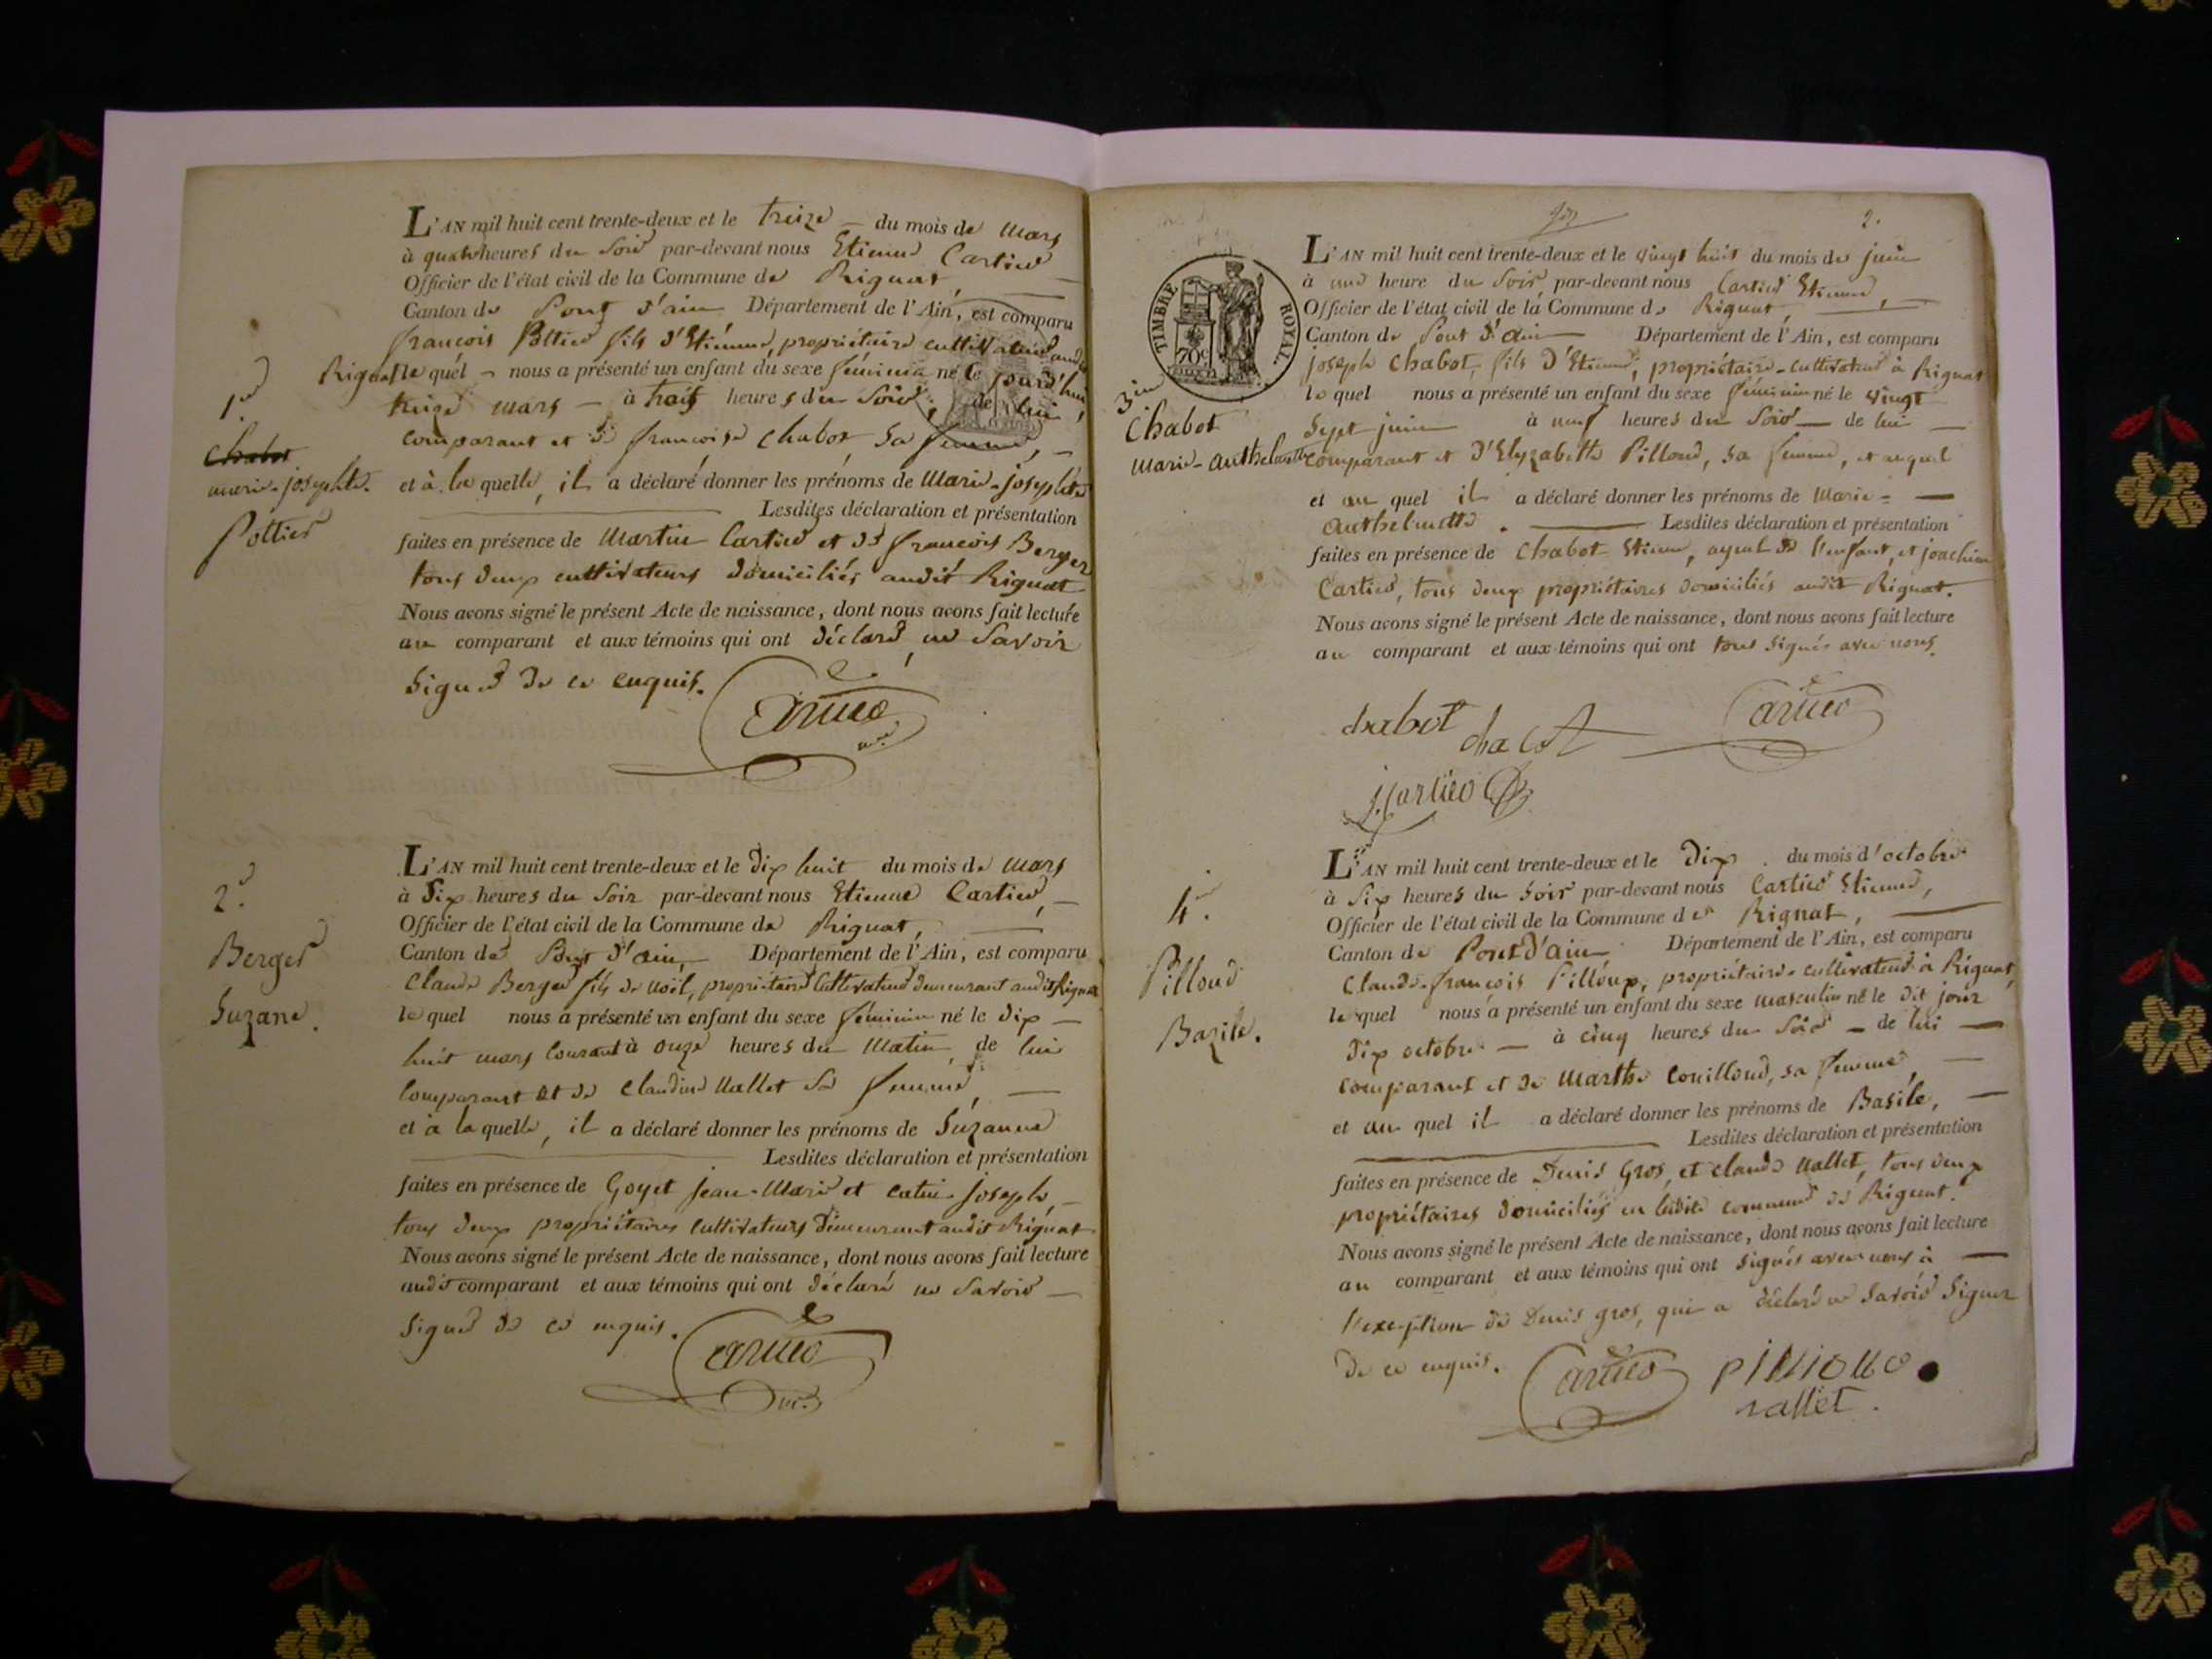 L'AN mil huit cent trente-deux et le treize du mois de Mars
à quatre heures du Soir par-devant nous Etienne Cartier
Officier de l'état civil de la Commune de Rignat,
Canton de Pont d'ain Département de l'Ain, est comparu
françois Pottier fils d'Etienne, propriétaire cultivateur audit
Rignat le quel nous a présenté un enfant du sexe féminin né le jourd'hui
treize mars à trois heures du Soir, de lui
comparant et de françoise chabot sa femme,
et à la quelle, il a déclaré donner les prénoms de Marie-josephte
Lesdites déclaration et présentation
faites en présence de Martin Cartier et de françois Berger
tous deux cultivateurs domiciliés audit Rignat
Nous avons signé le présent Acte de naissance, dont nous avons fait lecture
au comparant et aux témoins qui ont déclaré ne Savoir
Signer de ce enquis.
1.er
chabot
marie-josephte.
Pottier
Cartier
L'AN mil huit cent trente-deux et le dix huit du mois de Mars
à Six heures du Soir par-devant nous Etienne Cartier,
Officier de l'état civil de la Commune de Rignat,
Canton de Pont d'ain, Département de l'Ain, est comparu
Claude Berger fils de Noël, propriétaire Cultivateur demeurant audit Rignat
le quel nous a présenté un enfant du sexe féminin né le dix
huit mars Courant à onze heures du Matin, de lui
Comparant et de Claudine Vallet Sa femme,
et à la quelle, il a déclaré donner les prénoms de Suzanne
Lesdites déclaration et présentation
faites en présence de Goyet Jean-Marie et joseph,
tous deux propriétaires Cultivateurs demeurant audit Rignat
Nous avons signé le présent Acte de naissance, dont nous avons fait lecture
audit comparant et aux témoins qui ont déclaré ne Savoir
Signer de ce enquis.
2.e
Berger
Suzane.
Cartier
2.
TIMBRE ROYAL.
70c
L'AN mil huit cent trente-deux et le vingt huit du mois de juin
à une heure du Soir par-devant nous Cartier Etienne,
Officier de l'état civil de la Commune de Rignat,
Canton de Pont d'ain Département de l'Ain, est comparu
joseph Chabot, fils d'Etienne, propriétaire-Cultivateur à Rignat
le quel nous a présenté un enfant du sexe féminin né le vingt
Sept juin à neuf heures du Soir de lui
comparant et d'Elyzabeth Pilloud, sa femme, et auquel
et au quel il a déclaré donner les prénoms de Marie-
Anthelmette. Lesdites déclaration et présentation
faites en présence de Chabot Etienne, ayeul de l'enfant, et joachim
Cartier, tous deux propriétaires domiciliés audit Rignat.
Nous avons signé le présent Acte de naissance, dont nous avons fait lecture
au comparant et aux témoins qui ont tous Signés avec nous.
3.me
Chabot
Marie-Anthelmette
chabot
Cartier
J. Cartier
L'AN mil huit cent trente-deux et le Dix du mois d'octobre
à Six heures du Soir par-devant nous Cartier Etienne,
Officier de l'état civil de la Commune de Rignat,
Canton de Pont d'ain Département de l'Ain, est comparu
Claude-françois Pilloux, propriétaire-cultivateur à Rignat,
le quel nous a présenté un enfant du sexe masculin né le dit jour
dix octobre à cinq heures du Soir de lui
comparant et de Marthe Convilloud, sa femme,
et au quel il a déclaré donner les prénoms de Basile,
Lesdites déclaration et présentation
faites en présence de Denis Gros, et Claude Vallet, tous deux
propriétaires domiciliés en ladite commune de Rignat.
Nous avons signé le présent Acte de naissance, dont nous avons fait lecture
au comparant et aux témoins qui ont signés avec nous à
l'exeption de Denis gros, qui a déclaré ne Savoir Signer
de ce enquis.
4.me
Pilloud
Bazile.
Cartier
vallet.